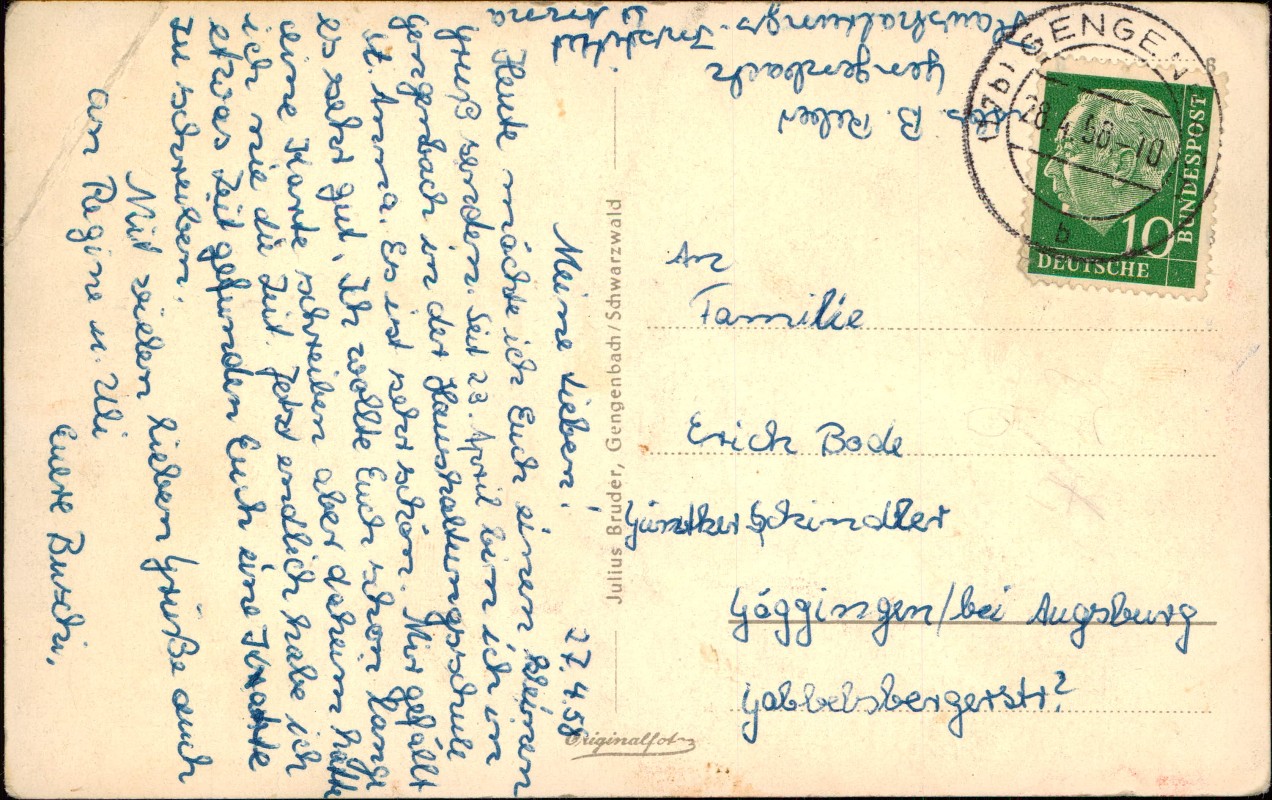 27.4.58
Meine Lieben!
Heute möchte ich Euch einen kleinen
Gruß senden. Seit 23. April bin ich in
Gengenbach in der Haushaltungsschule
St. Anna. Es ist sehr schön. Mir gefällt
es sehr gut. Ich wollte Euch schon lange
eine Karte schreiben aber dazu hatte
ich nie die Zeit. Jetzt endlich habe ich
etwas Zeit gefunden Euch eine Karte
zu schreiben.
Mit vielen lieben Grüße auch
an Regine u. Uli
Eure Buschi.
B. Reber
Gengenbach
Haushaltungs-Institut
St. Anna
Julius Bruder, Gengenbach/Schwarzwald
Originalfoto
GENGENBACH
28.4.58-10
b
10
BUNDESPOST
DEUTSCHE
An
Familie
Erich Bode
Günther Schindler
Göggingen/bei Augsburg
Gabbelsbergerstr?